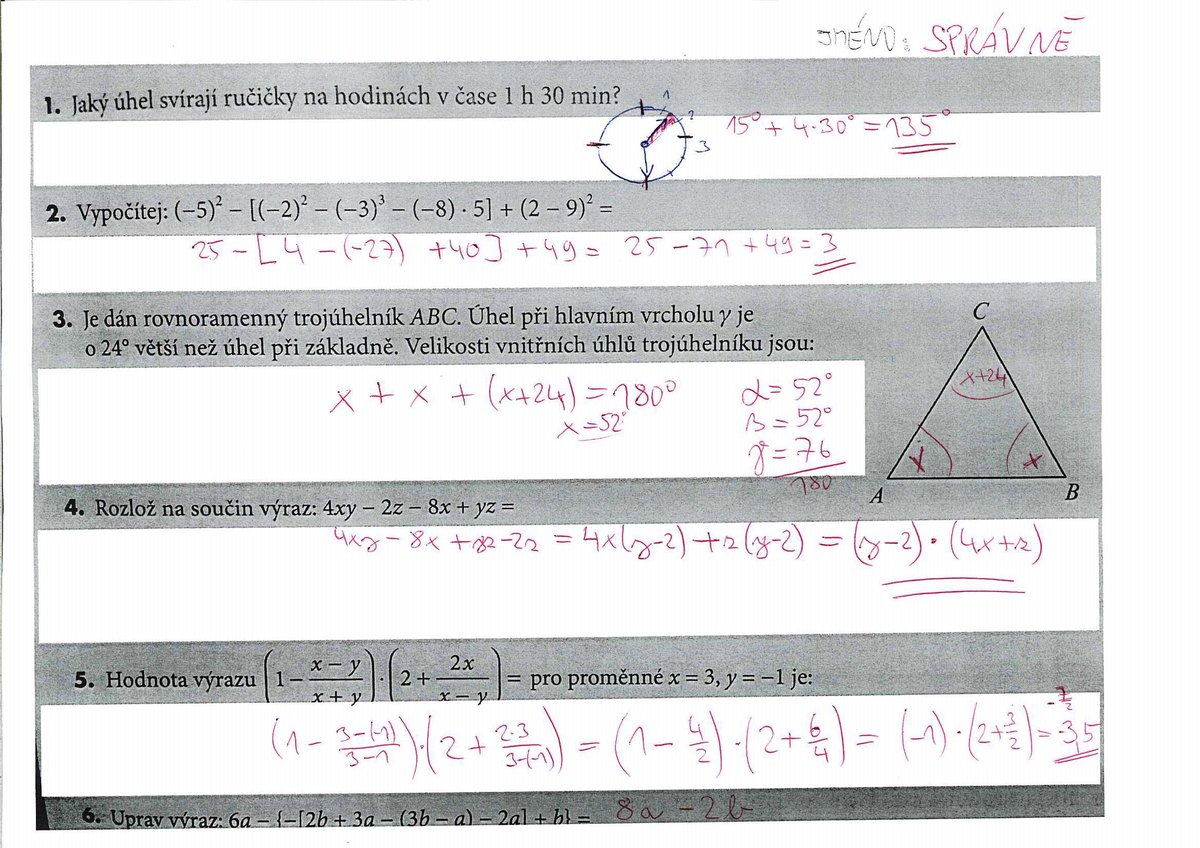 JMÉNO: SPRÁVNĚ
1. Jaký úhel svírají ručičky na hodinách v čase 1 h 30 min?
1
2
3
15° + 4·30° = 135°
2. Vypočítej: (−5)² − [(−2)² − (−3)³ − (−8) · 5] + (2 − 9)² =
25 − [4 − (−27) + 40] + 49 = 25 − 71 + 49 = 3
3. Je dán rovnoramenný trojúhelník ABC. Úhel při hlavním vrcholu γ je
o 24° větší než úhel při základně. Velikosti vnitřních úhlů trojúhelníku jsou:
C
x+24
x x
A B
x + x + (x+24) = 180°
x = 52°
α = 52°
β = 52°
γ = 76
180
4. Rozlož na součin výraz: 4xy − 2z − 8x + yz =
4xy − 8x + yz − 2z = 4x(y−2) + z(y−2) = (y−2) · (4x+z)
5. Hodnota výrazu (1 − (x − y)/(x + y)) · (2 + 2x/(x − y)) = pro proměnné x = 3, y = −1 je:
(1 − (3−(−1))/(3−1)) · (2 + (2·3)/(3−(−1))) = (1 − 4/2) · (2 + 6/4) = (−1) · (2 + 3/2) = −3,5
−7/2
6. Uprav výraz: 6a − {−[2b + 3a − (3b − a) − 2a] + b} = 8a − 2b